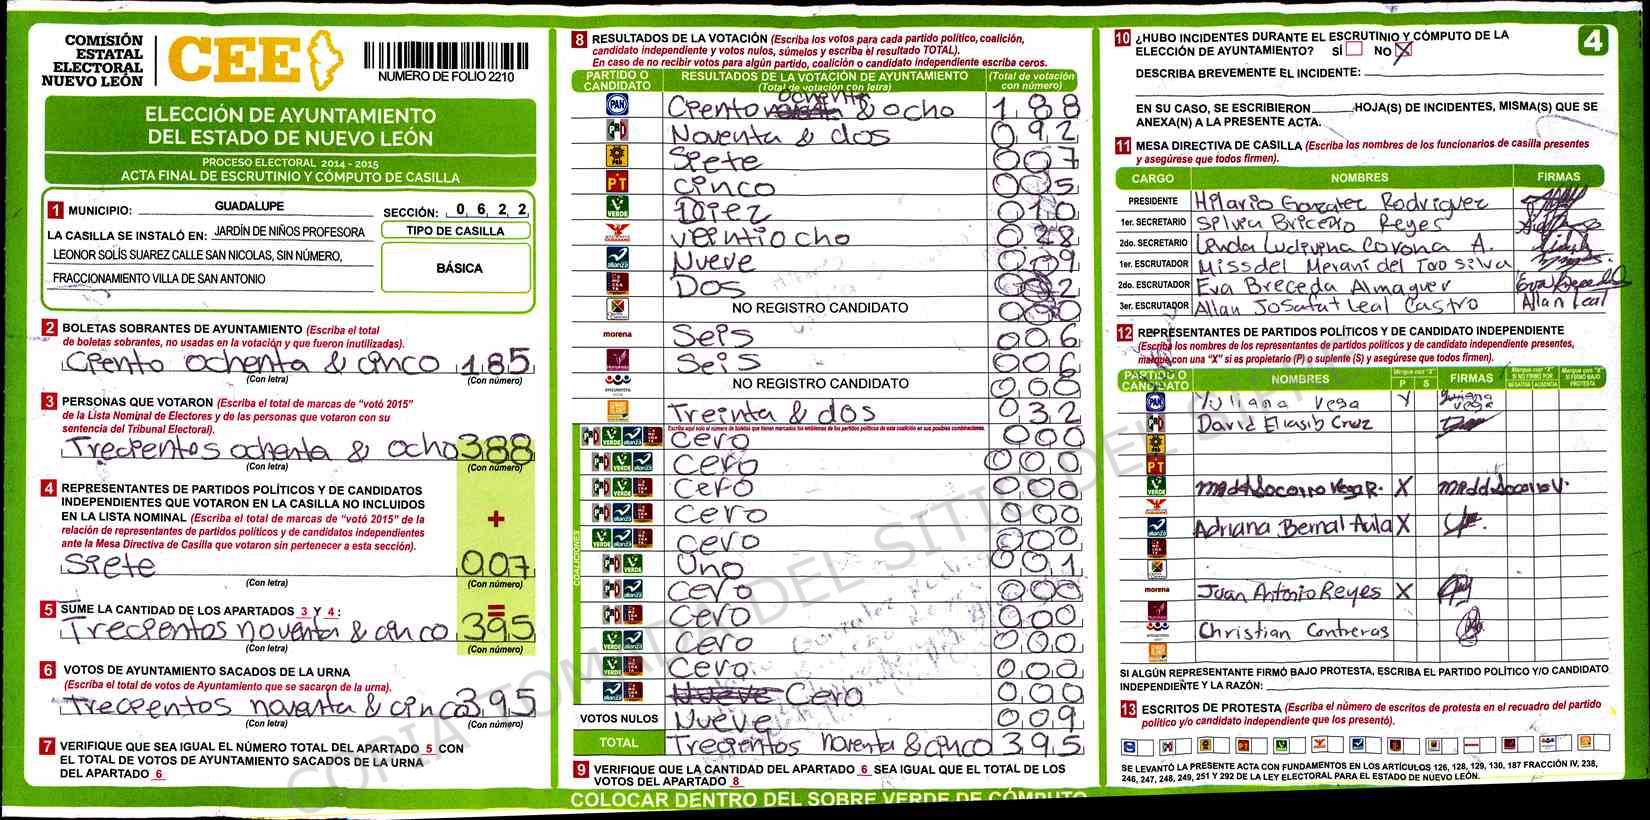 COMISIÓN
ESTATAL
ELECTORAL
NUEVO LEÓN
CEE
NUMERO DE FOLIO 2210
ELECCIÓN DE AYUNTAMIENTO
DEL ESTADO DE NUEVO LEÓN
PROCESO ELECTORAL 2014 - 2015
ACTA FINAL DE ESCRUTINIO Y CÓMPUTO DE CASILLA
1 MUNICIPIO: GUADALUPE SECCIÓN: 0 6 2 2
LA CASILLA SE INSTALÓ EN: JARDÍN DE NIÑOS PROFESORA
LEONOR SOLÍS SUAREZ CALLE SAN NICOLAS, SIN NÚMERO,
FRACCIONAMIENTO VILLA DE SAN ANTONIO
TIPO DE CASILLA
BÁSICA
2 BOLETAS SOBRANTES DE AYUNTAMIENTO (Escriba el total
de boletas sobrantes, no usadas en la votación y que fueron inutilizadas).
Ciento ochenta & cinco 185
(Con letra) (Con número)
3 PERSONAS QUE VOTARON (Escriba el total de marcas de "votó 2015"
de la Lista Nominal de Electores y de las personas que votaron con su
sentencia del Tribunal Electoral).
Trecientos ochenta & ocho 388
(Con letra) (Con número)
4 REPRESENTANTES DE PARTIDOS POLÍTICOS Y DE CANDIDATOS
INDEPENDIENTES QUE VOTARON EN LA CASILLA NO INCLUIDOS
EN LA LISTA NOMINAL (Escriba el total de marcas de "votó 2015" de la
relación de representantes de partidos políticos y de candidatos independientes
ante la Mesa Directiva de Casilla que votaron sin pertenecer a esta sección).
+
Siete 007
(Con letra) (Con número)
=
5 SUME LA CANTIDAD DE LOS APARTADOS 3 Y 4 :
Trecientos noventa & cinco 395
(Con letra) (Con número)
6 VOTOS DE AYUNTAMIENTO SACADOS DE LA URNA
(Escriba el total de votos de Ayuntamiento que se sacaron de la urna).
Trecientos noventa & cinco 395
(Con letra) (Con número)
7 VERIFIQUE QUE SEA IGUAL EL NÚMERO TOTAL DEL APARTADO 5 CON
EL TOTAL DE VOTOS DE AYUNTAMIENTO SACADOS DE LA URNA
DEL APARTADO 6
8 RESULTADOS DE LA VOTACIÓN (Escriba los votos para cada partido político, coalición,
candidato independiente y votos nulos, súmelos y escriba el resultado TOTAL).
En caso de no recibir votos para algún partido, coalición o candidato independiente escriba ceros.
PARTIDO O CANDIDATO RESULTADOS DE LA VOTACIÓN DE AYUNTAMIENTO (Total de votación con letra) (Total de votación con número)
PAN Ciento ochenta & ocho 188
PRI Noventa & dos 092
PRD Siete 007
PT Cinco 005
VERDE Diez 010
Veintiocho 028
Nueve 009
Dos 002
NO REGISTRO CANDIDATO 000
morena Seis 006
Seis 006
NO REGISTRO CANDIDATO 000
Treinta & dos 032
COALICIONES
Escriba aquí solo el número de boletas que tienen marcados los emblemas de los partidos políticos de esta coalición en sus posibles combinaciones.
Cero 000
Cero 000
Cero 000
Cero 000
Cero 000
Uno 001
Cero 000
Cero 000
Cero 000
Cero 000
Nueve Cero 000
VOTOS NULOS Nueve 009
TOTAL Trecientos noventa & cinco 395
9 VERIFIQUE QUE LA CANTIDAD DEL APARTADO 6 SEA IGUAL QUE EL TOTAL DE LOS
VOTOS DEL APARTADO 8
COLOCAR DENTRO DEL SOBRE VERDE DE CÓMPUTO
10 ¿HUBO INCIDENTES DURANTE EL ESCRUTINIO Y CÓMPUTO DE LA
ELECCIÓN DE AYUNTAMIENTO? SÍ NO X
4
DESCRIBA BREVEMENTE EL INCIDENTE:
EN SU CASO, SE ESCRIBIERON HOJA(S) DE INCIDENTES, MISMA(S) QUE SE
ANEXA(N) A LA PRESENTE ACTA.
11 MESA DIRECTIVA DE CASILLA (Escriba los nombres de los funcionarios de casilla presentes
y asegúrese que todos firmen).
CARGO NOMBRES FIRMAS
PRESIDENTE Hilario Gonzalez Rodriguez
1er. SECRETARIO Silvia Briceño Reyes
2do. SECRETARIO Linda Ludivina Corona A.
1er. ESCRUTADOR Missdel Merani del Toro Silva
2do. ESCRUTADOR Eva Breceda Almaguer Eva Breceda
3er. ESCRUTADOR Allan Josafat Leal Castro Allan Leal
12 REPRESENTANTES DE PARTIDOS POLÍTICOS Y DE CANDIDATO INDEPENDIENTE
(Escriba los nombres de los representantes de partidos políticos y de candidato independiente presentes,
marque con una "X" si es propietario (P) o suplente (S) y asegúrese que todos firmen).
PARTIDO O CANDIDATO NOMBRES Marque con "X" P S FIRMAS Marque con "X" SI NO FIRMÓ POR NEGATIVA AUSENCIA Marque con "X" SI FIRMÓ BAJO PROTESTA
PAN Yuliana Vega X Yuliana Vega
PRI David Eliasib Cruz
PRD
PT
VERDE Ma del Socorro Vega R. X Ma del Socorro V.
Adriana Bernal Avila X
morena Juan Antonio Reyes X
Christian Contreras
SI ALGÚN REPRESENTANTE FIRMÓ BAJO PROTESTA, ESCRIBA EL PARTIDO POLÍTICO Y/O CANDIDATO
INDEPENDIENTE Y LA RAZÓN:
13 ESCRITOS DE PROTESTA (Escriba el número de escritos de protesta en el recuadro del partido
político y/o candidato independiente que los presentó).
SE LEVANTÓ LA PRESENTE ACTA CON FUNDAMENTOS EN LOS ARTÍCULOS 126, 128, 129, 130, 187 FRACCIÓN IV, 238,
246, 247, 248, 249, 251 Y 292 DE LA LEY ELECTORAL PARA EL ESTADO DE NUEVO LEÓN.
COPIA TOMADA DEL SITIO DEL SIPRE